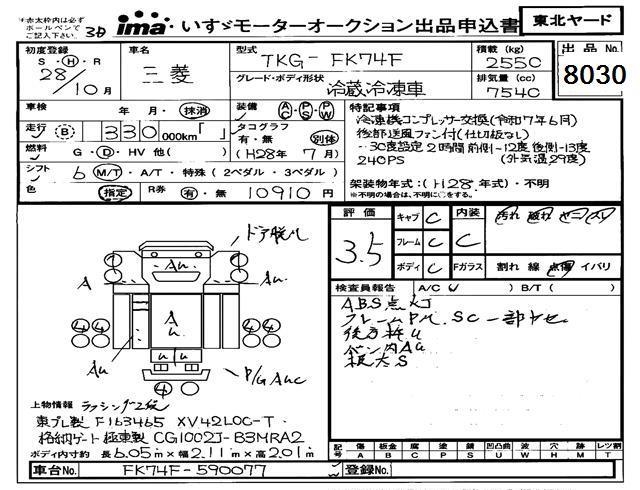 ※赤太枠内は必ず
ボールペンで
ご記入下さい。
ima いすゞモーターオークション出品申込書
東北ヤード
初度登録 S・H・R 28/10月
車名 三菱
型式 TKG-FK74F
積載(kg) 2550
出品No. 8030
グレード・ボディ形状 冷蔵冷凍車
排気量(cc) 7540
車検 年 月・抹消
装備 AC・PS・PW
特記事項
冷凍機コンプレッサー交換(令和7年6月)
後部送風ファン付(仕切板なし)
-30度設定2時間前側-12度後側-13度
240PS (外気温29度)
走行 B 330000km「 」
タコグラフ 有・無 別体
(H28年 7月)
燃料 G・D・HV 他( )
シフト 6 M/T・A/T・特殊(2ペダル・3ペダル)
架装物年式:(H28年式)・不明
※不明の場合は、不明に○をする。
色 指定 R券 有・無 10910円
ドア脱ハ
A
Au
Au
A
u
Au
Au
u u
4 4
4 4
4
P/G AUC
評価 3.5
キャブ C
内装 C
汚れ 破れ ヤニ スリ
フレーム C
ボディ C
Fガラス 割れ 線 点傷 イバリ
検査員報告 A/C( レ ) B/T( )
ABS点灯
SC一部ヤセ
Au
S
上物情報 ラッシング2段
東プレ製 F163465 XV42LOC-T
格納ゲート極東製 CG1002J-B3MRA2
ボディ内寸約 長6.05m×幅2.11m×高2.01m
記号 傷 板金 腐 塗 錆 凹凸曲 波 穴 跡 レツ割
A B C P S U W H M T
車台No. FK74F-590077
登録No.